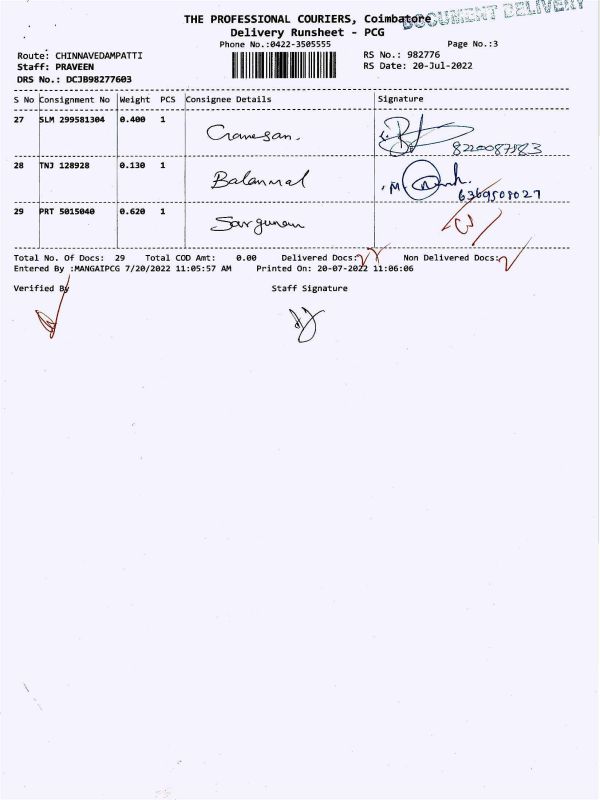 THE PROFESSIONAL COURIERS, Coimbatore
DOCUMENT DELIVERY
Delivery Runsheet - PCG
Phone No.:0422-3505555
Page No.:3
Route: CHINNAVEDAMPATTI
RS No.: 982776
Staff: PRAVEEN
RS Date: 20-Jul-2022
DRS No.: DCJB98277603
S No Consignment No Weight PCS Consignee Details Signature
27 SLM 299581304 0.400 1 Ganesan.
28 TNJ 128928 0.130 1 Balammal M.
6369508027
29 PRT 5015040 0.620 1 Sargunam
Total No. Of Docs: 29 Total COD Amt: 0.00 Delivered Docs: Non Delivered Docs:
Entered By :MANGAIPCG 7/20/2022 11:05:57 AM Printed On: 20-07-2022 11:06:06
Verified By Staff Signature